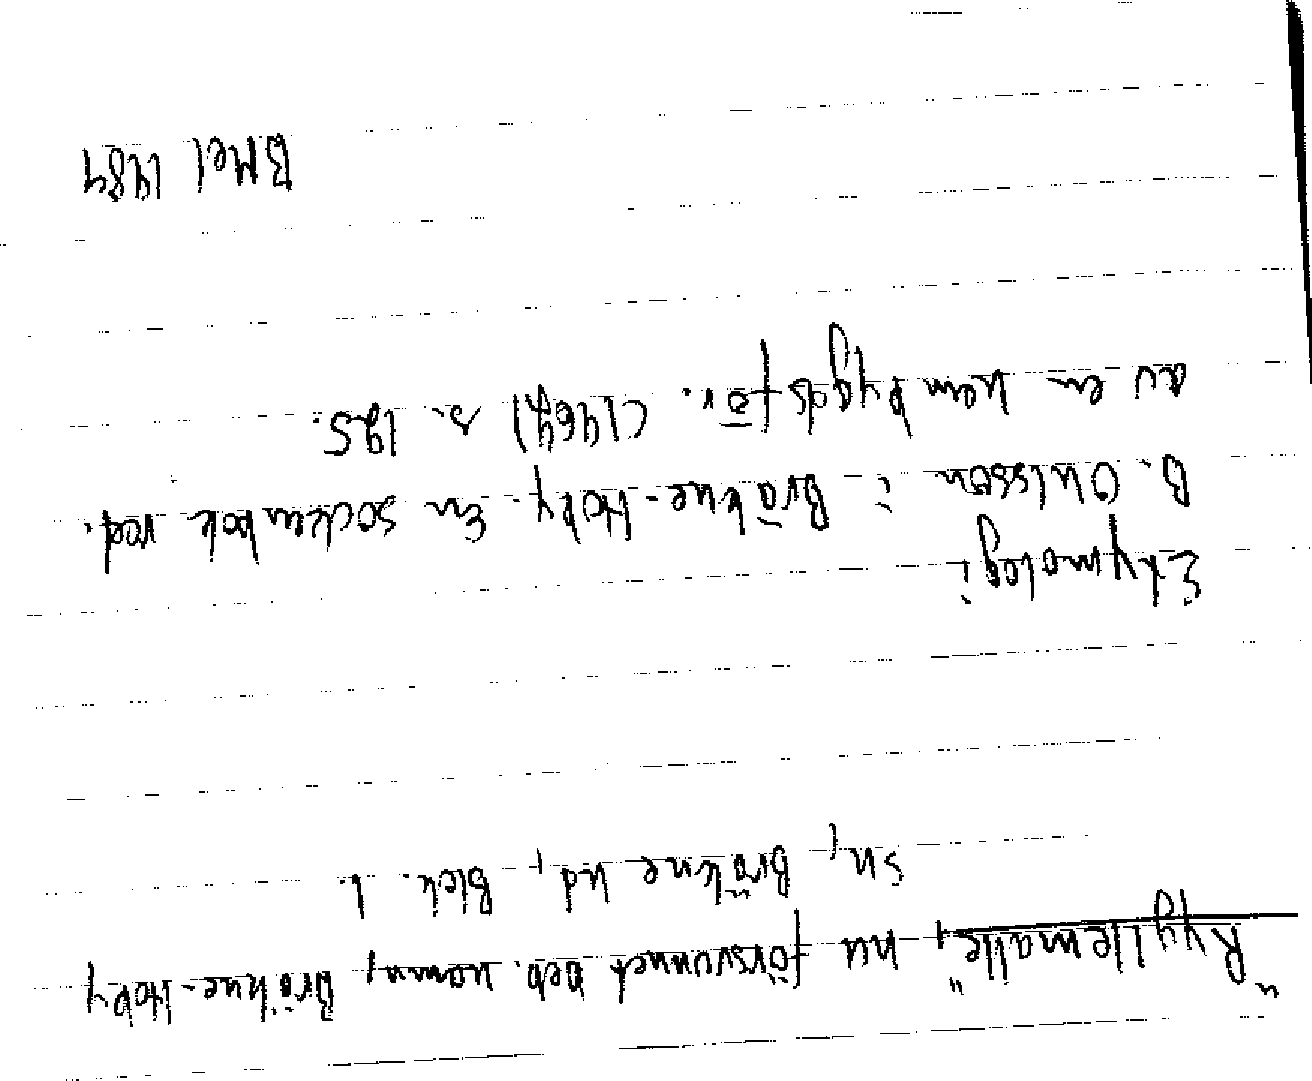 "Rygillemalle", nu försvunnet beb. namn, Bräkne-Hoby
sn, Bräkne hd, Blek. l.
Etymologi:
B. Ohlsson i Bräkne-Hoby. En sockenbok red.
av en hembygdsför. (1967) s. 195.
BMel 1989